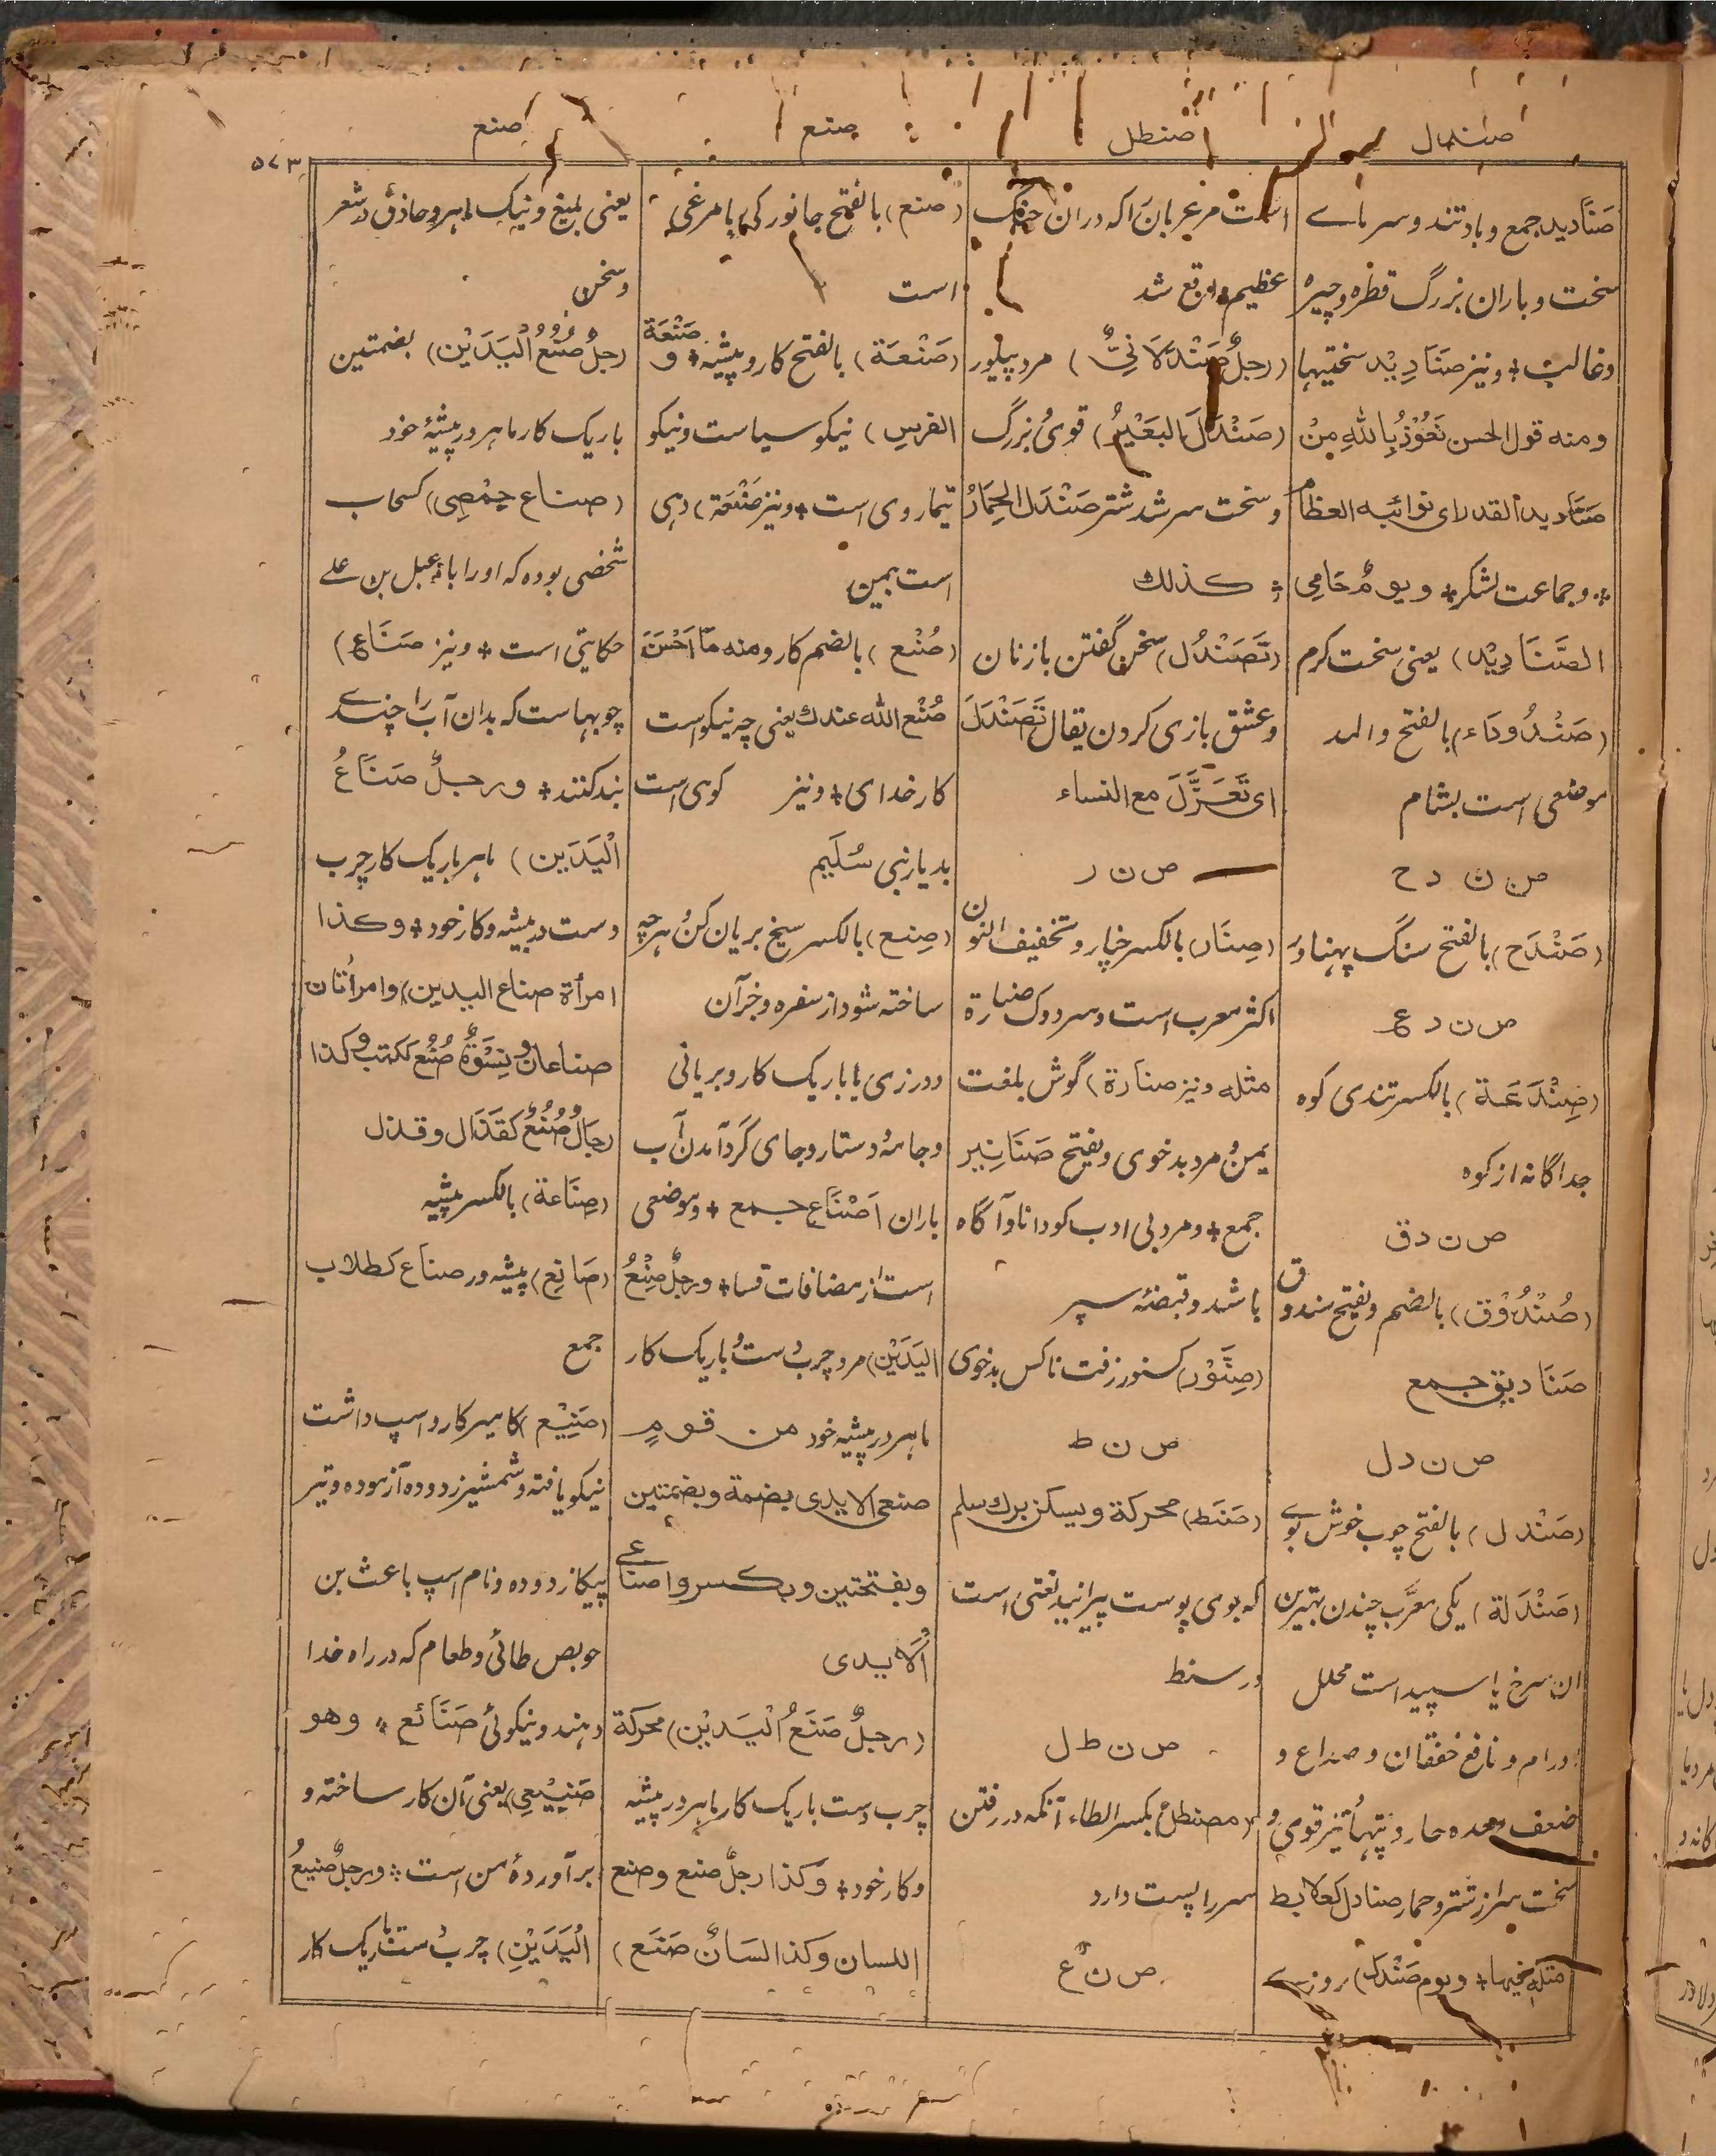 صندل
صنطل
صنع
صنع
۵۷۳
صَنَادید جمع و باد تند و سرمای
سخت و باران بزرگ قطره و چیره
و غالب + و نیز صَنَادِیْد سختیها
و منه قول الحسن نَعُوْذُ بِاللهِ مِنْ
صَنَادید القدر ای نوائبه العظام
+ و جماعت لشکر + و یومٌ حَامِی
الصَّنَادِیْد) یعنی سخت گرم
(صَنْدُودَاء) بالفتح والمد
موضعی است بشام
ص ن د ح
(صَنْدَح) بالفتح سنگ پهناور
ص ن د ع
(صِنْدَعَة) بالکسر تندی کوه
جداگانه از کوه
ص ن د ق
(صُنْدُوْق) بالضم و یفتح صندوق
صَنَادیق جمع
ص ن د ل
(صَنْدل) بالفتح چوب خوش بوی
(صَنْدَلة) یکی معرَّب چندن بهترین
آن سرخ یا سپید است محلل
اورام و نافع خفقان و صداع و
ضعف معده حار و تپها نیز قوی و
سخت سر از شتر و حمار صنادل کعلابط
مثله فیهما + و یوم صَنْدَل) روزی
است مر عربان را که دران جنگ
عظیم واقع شد
(رجلٌ صَنْدَلَانِیٌّ) مرد پیلور
(صَنْدَلَ البَعِیْرُ) قوی بزرگ
و سخت سر شد شتر صَنْدَل الحِمَارُ
کذلك
(تَصَنْدُل) سخن گفتن با زنان
و عشق بازی کردن یقال تَصَنْدَلَ
ای تَغَزَّلَ مع النساء
ص ن ر
(صِنَار) بالکسر چنار و تخفیف النون
اکثر معرب است و سر دوک صنارة
مثله و نیز صنارة) گوش بلغت
یمن و مرد بدخوی و یفتح صَنَانِیر
جمع + و مرد بی ادب کو دانا و آگاه
باشد و قبضه سپر
(صِنَّوْر) کسنور زفت ناکس بدخوی
ص ن ط
(صَنَط) محرکة و یسکن برك سلم
که بوی پوست پیرانید لغتی است
در سنط
ص ن ط ل
(مصنطل) بکسر الطاء آنکه در رفتن
سر را پست دارد
ص ن ع
(صنع) بالفتح جانورکی یا مرغی
است
(صَنْعَة) بالفتح کار و پیشه + و صَنْعَة
الفرس) نیکو سیاست و نیکو
تیمار وی است + و نیز صَنْعَة) دهی
است بیمن
(صُنْع) بالضم کار و منه مَا اَحْسَنَ
صُنْع الله عندك یعنی چه نیکو است
کار خدای + و نیز کوهی است
بدیار بنی سُلَیم
(صِنع) بالکسر سیخ بریان کن و هرچه
ساخته شود از سفره و جز آن
و درزی یا باریک کار و بریانی
و جامه و دستار و جای گرد آمدن آب
باران اَصْنَاع جمع + و موضعی
است از مضافات قسا + و رجلٌ صِنْعُ
الیَدَیْن) مرد چرب دست و باریک کار
ماهر در پیشه خود من قومٍ
صنعی الایدی بضمة و بضمتین
و بفتحتین و بکسر و اصناعی
اْلاَیدی
(رجلٌ صَنَعُ الْیَدَیْن) محرکة
چرب دست باریک کار ماهر در پیشه
و کار خود + و کذا رجلٌ صنع و صنع
اللسان و کذا لسَانٌ صَنَع)
یعنی بلیغ و نیک ماهر و حاذق در شعر
و سخن
(رجلٌ صُنُعُ الْیَدَیْن) بضمتین
باریک کار ماهر در پیشهٔ خود
(صناع حِمْصِی) کسحاب
شخصی بوده که او را با دعبل بن علی
حکایتی است + و نیز صَنَاع)
چوبهاست که بدان آب را چندی
بند کنند + و رجلٌ صَنَاعُ
الْیَدَیْن) ماهر باریک کار چرب
دست در پیشه و کار خود + و کذا
امرأة صناع الیدین) و امرأتان
صناعان و نِسْوَةٌ صُنُع ککتب و کذا
رجالٌ صُنُعٌ کقَذَال و قذل
(صِنَاعة) بالکسر پیشه
(صَانِع) پیشه ور صناع کطلاب
جمع
(صَنِیْع) کامیر کار و اسپ داشت
نیکو یافته و شمشیر زدوده آزموده و تیر
پیکان زدوده و نام اسپ باعث بن
حویص طائی و طعام که در راه خدا
دهند و نیکوئی صَنَائع + و هو
صَنِیْعِی) یعنی آن کار ساخته و
بر آوردهٔ من است + و رجلٌ صَنیعُ
الْیَدَیْنِ) چرب دست باریک کار